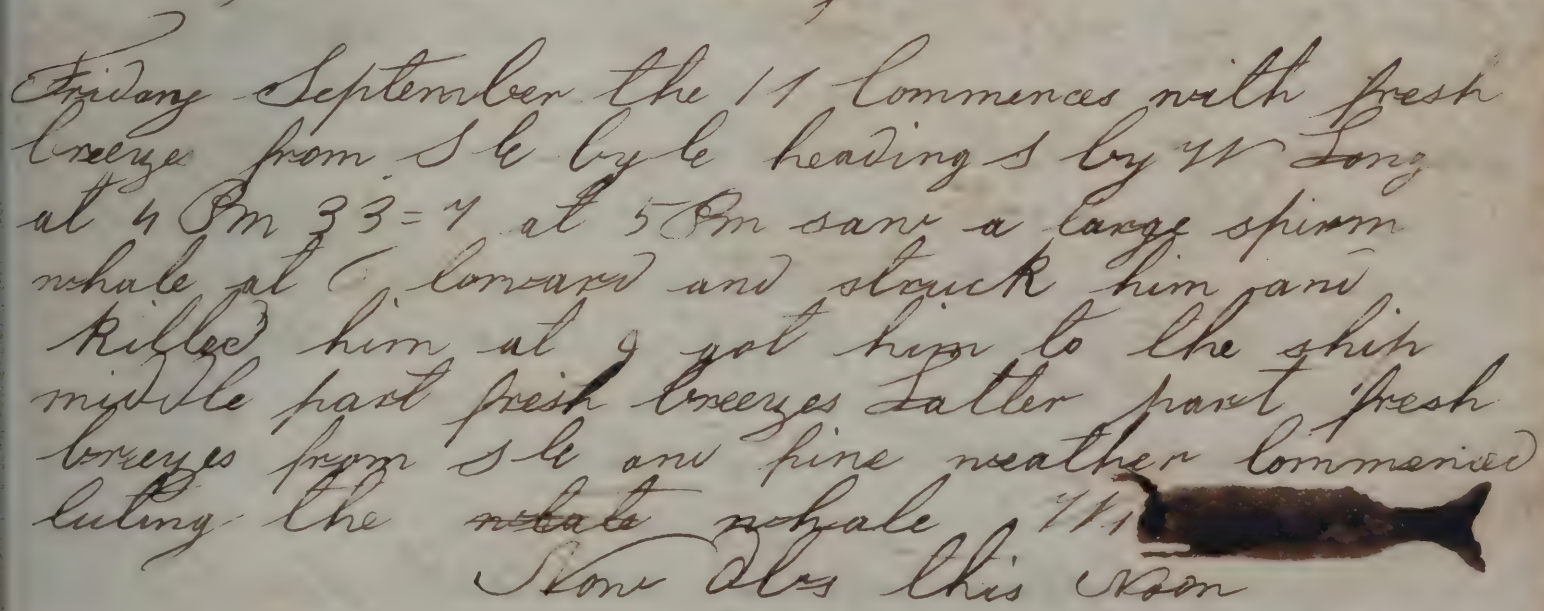 Friday September the 11 Commences with fresh
breeze from S E by E heading S by W Long
at 4 Pm 33=7 at 5 Pm saw a large spirm
whale at 6 loward and struck him and
killed him at 9 got him to the ship
middle part fresh breezes Latter part fresh
breezes from S E and fine weather Commenced
cuting the whale whale
Now Obs this Noon